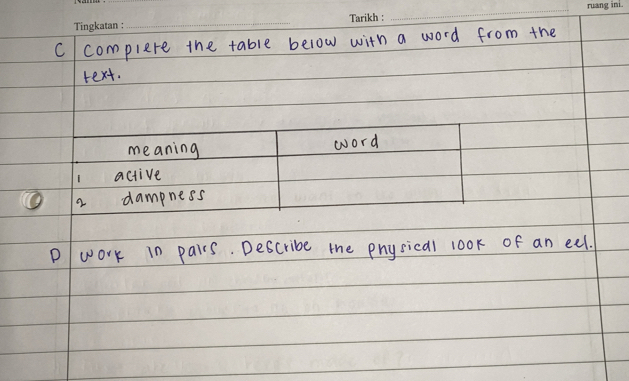 ruang ini.
Tingkatan : Tarikh :
C complete the table below with a word from the
text.
meaning word
1 active
2 dampness
D work in pairs. Describe the physical look of an eel.